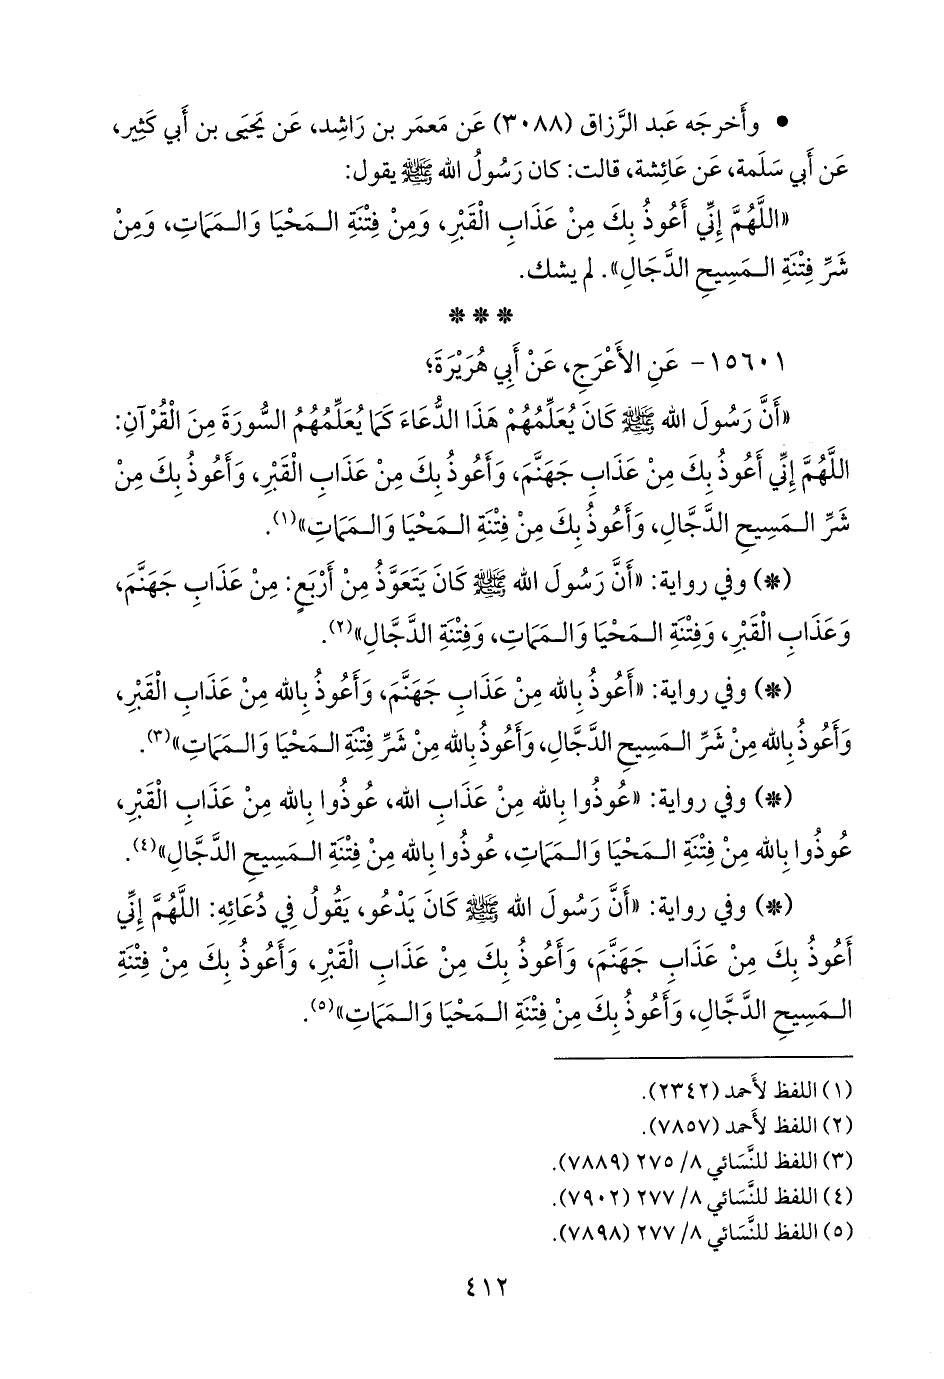 • وأَخرجَه عَبد الرَّزاق (٣٠٨٨) عَن مَعمَر بن رَاشِد، عَن يَحيَى بن أَبي كَثِير،
عَن أَبي سَلَمة، عَن عَائِشة، قالت: كان رَسُولُ الله ﷺ يقول:
«اللَّهُمَّ إِنِّي أَعُوذُ بِكَ مِنْ عَذَابِ الْقَبْرِ، وَمِنْ فِتْنَةِ الـمَحْيَا وَالـمَمَاتِ، وَمِنْ
شَرِّ فِتْنَةِ الـمَسِيحِ الدَّجَالِ». لم يشك.
* * *
١٥٦٠١- عَنِ الأَعْرَجِ، عَنْ أَبِي هُرَيْرَةَ؛
«أَنَّ رَسُولَ الله ﷺ كَانَ يُعَلِّمُهُمْ هَذَا الدُّعَاءَ كَمَا يُعَلِّمُهُمُ السُّورَةَ مِنَ الْقُرْآنِ:
اللَّهُمَّ إِنِّي أَعُوذُ بِكَ مِنْ عَذَابِ جَهَنَّمَ، وَأَعُوذُ بِكَ مِنْ عَذَابِ الْقَبْرِ، وَأَعُوذُ بِكَ مِنْ
شَرِّ الـمَسِيحِ الدَّجَّالِ، وَأَعُوذُ بِكَ مِنْ فِتْنَةِ الـمَحْيَا وَالـمَمَاتِ»(١).
(*) وفي رواية: «أَنَّ رَسُولَ الله ﷺ كَانَ يَتَعَوَّذُ مِنْ أَرْبَعٍ: مِنْ عَذَابِ جَهَنَّمَ،
وَعَذَابِ الْقَبْرِ، وَفِتْنَةِ الـمَحْيَا وَالـمَمَاتِ، وَفِتْنَةِ الدَّجَّالِ»(٢).
(*) وفي رواية: «أَعُوذُ بِالله مِنْ عَذَابِ جَهَنَّمَ، وَأَعُوذُ بِالله مِنْ عَذَابِ الْقَبْرِ،
وَأَعُوذُ بِالله مِنْ شَرِّ الـمَسِيحِ الدَّجَّالِ، وَأَعُوذُ بِالله مِنْ شَرِّ فِتْنَةِ الـمَحْيَا وَالـمَمَاتِ»(٣).
(*) وفي رواية: «عُوذُوا بِالله مِنْ عَذَابِ الله، عُوذُوا بِالله مِنْ عَذَابِ الْقَبْرِ،
عُوذُوا بِالله مِنْ فِتْنَةِ الـمَحْيَا وَالـمَمَاتِ، عُوذُوا بِالله مِنْ فِتْنَةِ الـمَسِيحِ الدَّجَّالِ»(٤).
(*) وفي رواية: «أَنَّ رَسُولَ الله ﷺ كَانَ يَدْعُو، يَقُولُ فِي دُعَائِهِ: اللَّهُمَّ إِنِّي
أَعُوذُ بِكَ مِنْ عَذَابِ جَهَنَّمَ، وَأَعُوذُ بِكَ مِنْ عَذَابِ الْقَبْرِ، وَأَعُوذُ بِكَ مِنْ فِتْنَةِ
الـمَسِيحِ الدَّجَّالِ، وَأَعُوذُ بِكَ مِنْ فِتْنَةِ الـمَحْيَا وَالـمَمَاتِ»(٥).
(١) اللفظ لأَحمد (٢٣٤٢).
(٢) اللفظ لأَحمد (٧٨٥٧).
(٣) اللفظ للنَّسَائي ٨/ ٢٧٥ (٧٨٨٩).
(٤) اللفظ للنَّسَائي ٨/ ٢٧٧ (٧٩٠٢).
(٥) اللفظ للنَّسَائي ٨/ ٢٧٧ (٧٨٩٨).
٤١٢